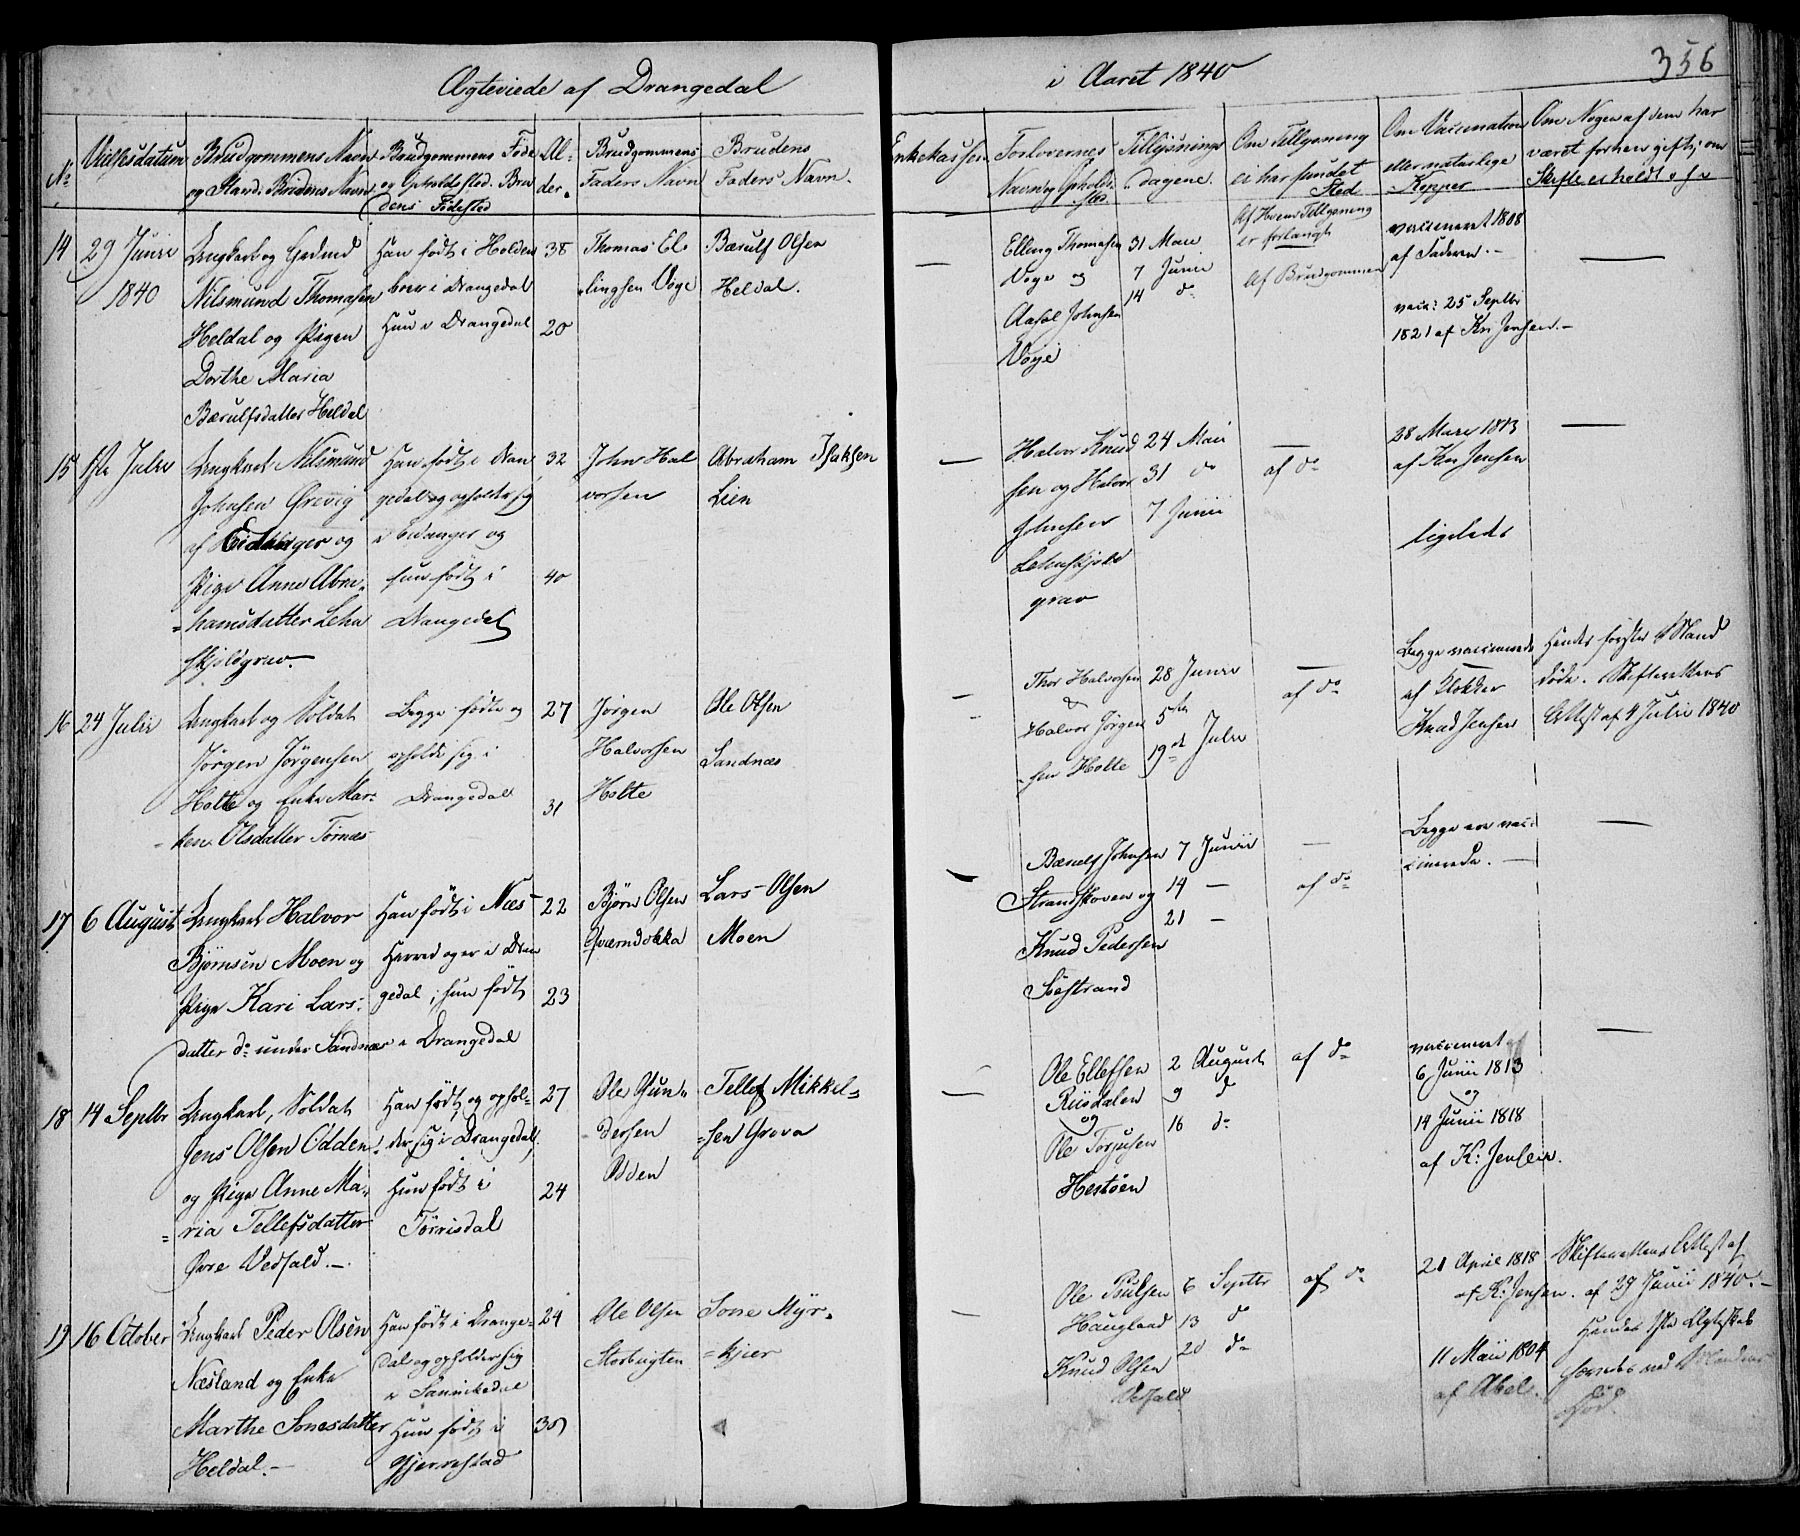 Ægteviede af Drangedal
i Aaret 1840
356
No
Vielsesdatum
Brudgommens Navn
og Stand. Brudens Navn
Brudgommens Føde
og Opholdssted. Bru
dens Fødested
Al-
der.
Brudgommens
Faders Navn
Brudens
Faders Navn.
Enkekassen
Forlovernes
Navn og Opholds-
sted
Tillysnings
dagene.
Om Tillysning
ei har fundet
Sted
Om Vaccination
eller naturlige
Kopper
Om Nogen af dem har
været forhen gift; om
Skifte er holdt
14
29 Junii
1840
Ungkarl og Gadmd
Nilsmund Thomasen
Heldal og Pigen
Dorthe Maria
Bærulfsdatter Heldal
Han født i Holden
boer i Drangedal
Hun i Drangedal
38
20
Thomas El-
lingsen Voje
Bærulf Olsen
Heldal.
—
Elling Thomasen
Voje og
Aasol Johnsen
Voje
31 Maii
7 Junii
14 do
Af Hvem Tillysning
er forlangt
Af Brudgommen
vaccineret 1808
af Faderen. –
vacc: 25 Septbr
1821 af Kn Jensen. –
—
15
1ste Julii
Ungkarl Nilsmund
Johnsen Grevig
af Eidanger og
Pige Anne Abra-
=hamsdatter Lehn
skjoldgrav. –
Han født i Dran
gedal og opholder sig
i Eidanger og
hun født i
Drangedal
32
40
John Hal
vorsen
Abraham Isaksen
Lien
—
Halvor Knud
sen og Halvor
Johnsen
Lehnskjold
grav
24 Maii
31 do
7 Junii
—
af do
28 Marz 1813
af Kn Jensen
ligeledes
—
16
24 Julii
Ungkarl og Soldat
Jørgen Jørgensen
Holte og Enke Mar-
=ken Olsdatter Tørnæs
Begge fødte og
opholde sig i
Drangedal
27
31
Jørgen
Halvorsen
Holte
Ole Olsen
Sandnæs
—
Thor Halvorsen
&
Halvor Jørgen
=sen Holte
28 Junii
5te
19de Julii
—
af do
Begge vaccinerede
af Klokker
Knud Jensen
Hendes første Mand
døde. Skifterettens
Attest af 4 Julii 1840
17
6 August
Ungkarl Halvor
Bjørnsen Moen og
Pige Kari Lars-
datter do under Sandnæs
Han født i Næs-
Herred og er i Dran
gedal; hun født
i Drangedal
22
23
Bjørn Olsen
Qværndokka
Lars Olsen
Moen
—
Bærulf Johnsen
Strandskoven og
Knud Pedersen
Søestrand
7 Junii
14 –
21 –
—
af do
Begge ere vac-
cinerede. –
—
18
14 Septbr
Ungkarl, Soldat
Jens Olsen Odden
og Pige Anne Ma-
=ria Tellefsdatter
Øvre Vedfald. –
Han født og ophol-
der sig i Drangedal,
hun født i
Tørrisdal
27
24
Ole Gun-
=dersen
Odden
Tellef Mikkel-
=sen Grova
—
Ole Ellefsen
Riisdalen
og
Ole Torjusen
Hestøen
2 August
9 d
16 do
af do
vaccineret
6 Junii 1813
og
14 Junii 1818
af K: Jensen.
—
19
16 October
Ungkarl Peder Olsen
Næsland og Enke
Marthe Sonesdatter
Heldal. –
Han født i Drange-
dal og opholder sig
i Sannikedal
Hun født i
Gjerrestad
24
39
Ole Olsen
Storbugten
Sone Myr-
=kjier
—
Ole Poulsen
Haugland
Knud Olsen
Vedfald
6 Septbr
13 do
20 do
af do
21 April 1818
af K: Jensen.
11 Maii 1804
af Abel.
Skifterettens Attest af
af 29 Junii 1840. –
Hendes 1ste Ægteskab
hævedes ved Mandens
Død.